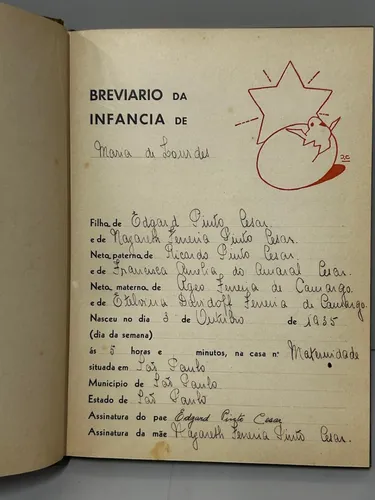 BREVIARIO DA
INFANCIA DE
Maria de Lourdes
Filha de Edgard Pinto Cesar
e de Nazareth Ferreira Pinto Cesar.
Neta paterna de Ricardo Pinto Cesar
e de Francisca Amelia do Amaral Cesar.
Neta materna de Ageo Ferreira de Camargo
e de Etelvina Ferreira de Camargo.
Nasceu no dia 3 de Outubro de 1935
(dia da semana)
ás 5 horas e minutos, na casa nº Maternidade
situada em São Paulo
Municipio de São Paulo
Estado de São Paulo
Assinatura do pae Edgard Pinto Cesar
Assinatura da mãe Nazareth Ferreira Pinto Cesar.